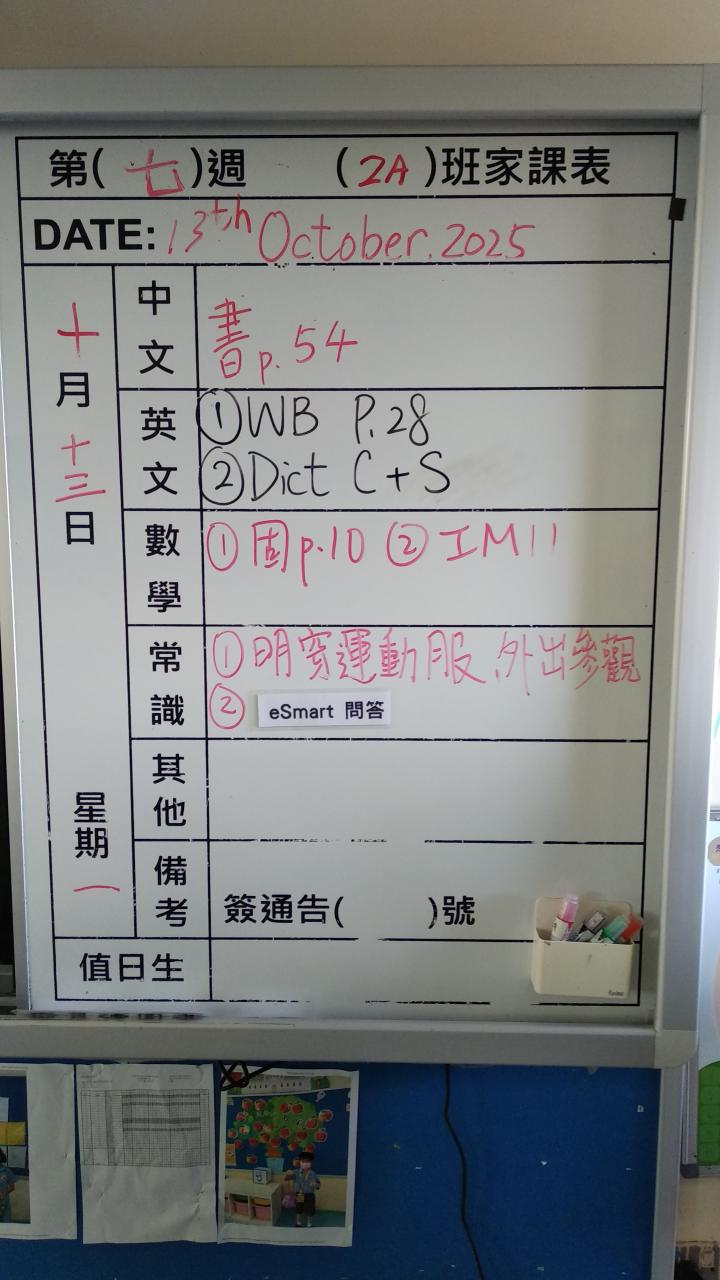 第(七)週 (2A)班家課表
DATE: 13th October. 2025
十月十三日 星期一
中文 書p.54
英文 ①WB P.28
②Dict C+S
數學 ①固p.10 ②工M11
常識 ①明穿運動服、外出參觀
② eSmart 問答
其他
備考 簽通告( )號
值日生